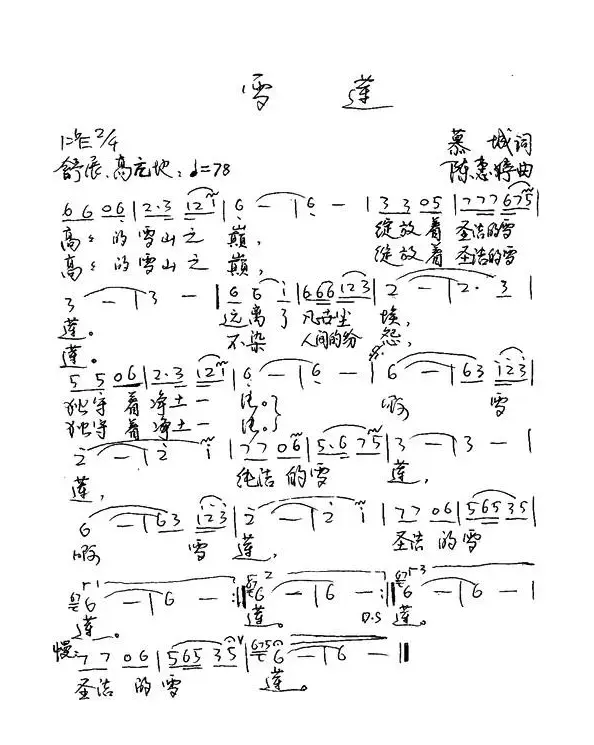 雪 莲
1=♭E 2/4
慕 城词
舒展、高亢地 ♩=78
陈惠婷曲
6 6 0 6 | 2·3 1 2 i | 6 — | 6 — | 3 3 0 5 | 7 7 7 6 7 5 |
高〻的雪山之 巅， 绽放着 圣洁的雪
高〻的雪山之 巅， 绽放着 圣洁的雪
3 — | 3 — | 6 6 i | 6 6 6 1 2 3 | 2 — | 2· 3 |
莲。 远离了 凡尘 埃，
莲。 不染 人间的纷 怨，
5 5 0 6 | 2·3 1 2 i | 6 — | 6 — | 6 — | 6 3 1 2 3 |
独守 着净土一 雪
独守 着净土一
2 — | 2 i | 7 7 0 6 | 5·6 7 5 | 3 — | 3 — |
莲， 纯洁的雪 莲，
6 — | 6 3 1 2 3 | 2 — | 2 i | 7 7 0 6 | 5 6 5 3 5 |
雪 莲， 圣洁的雪
1 6 — | 6 — :‖ 2 6 — | 6 — :‖ 3 6 — | 6 — |
莲。 莲。 D.S 莲。
慢 7 7 0 6 | 5 6 5 3 5 | 6 — | 6 — ‖
圣洁 的雪 莲。